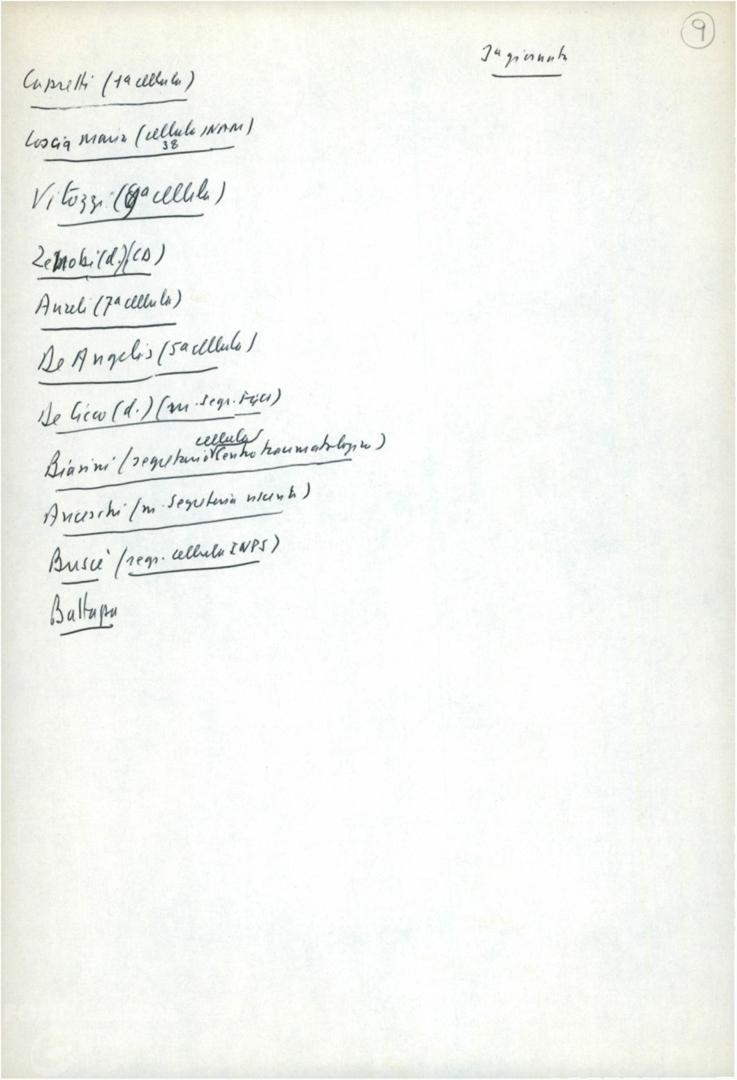 9
3ª giornata
Capretti (1ª cellula)
Coscia Maria (cellula INAM)
38
Vitozzi (8ª cellula)
Zenobi (d.) (CD)
Aureli (7ª cellula)
De Angelis (5ª cellula)
De Cicco (d.) (m. segr.
Biasini (segretario cellula Centro traumatologico)
Anceschi (m. segreteria uscente)
Buscè (segr. cellula INPS)